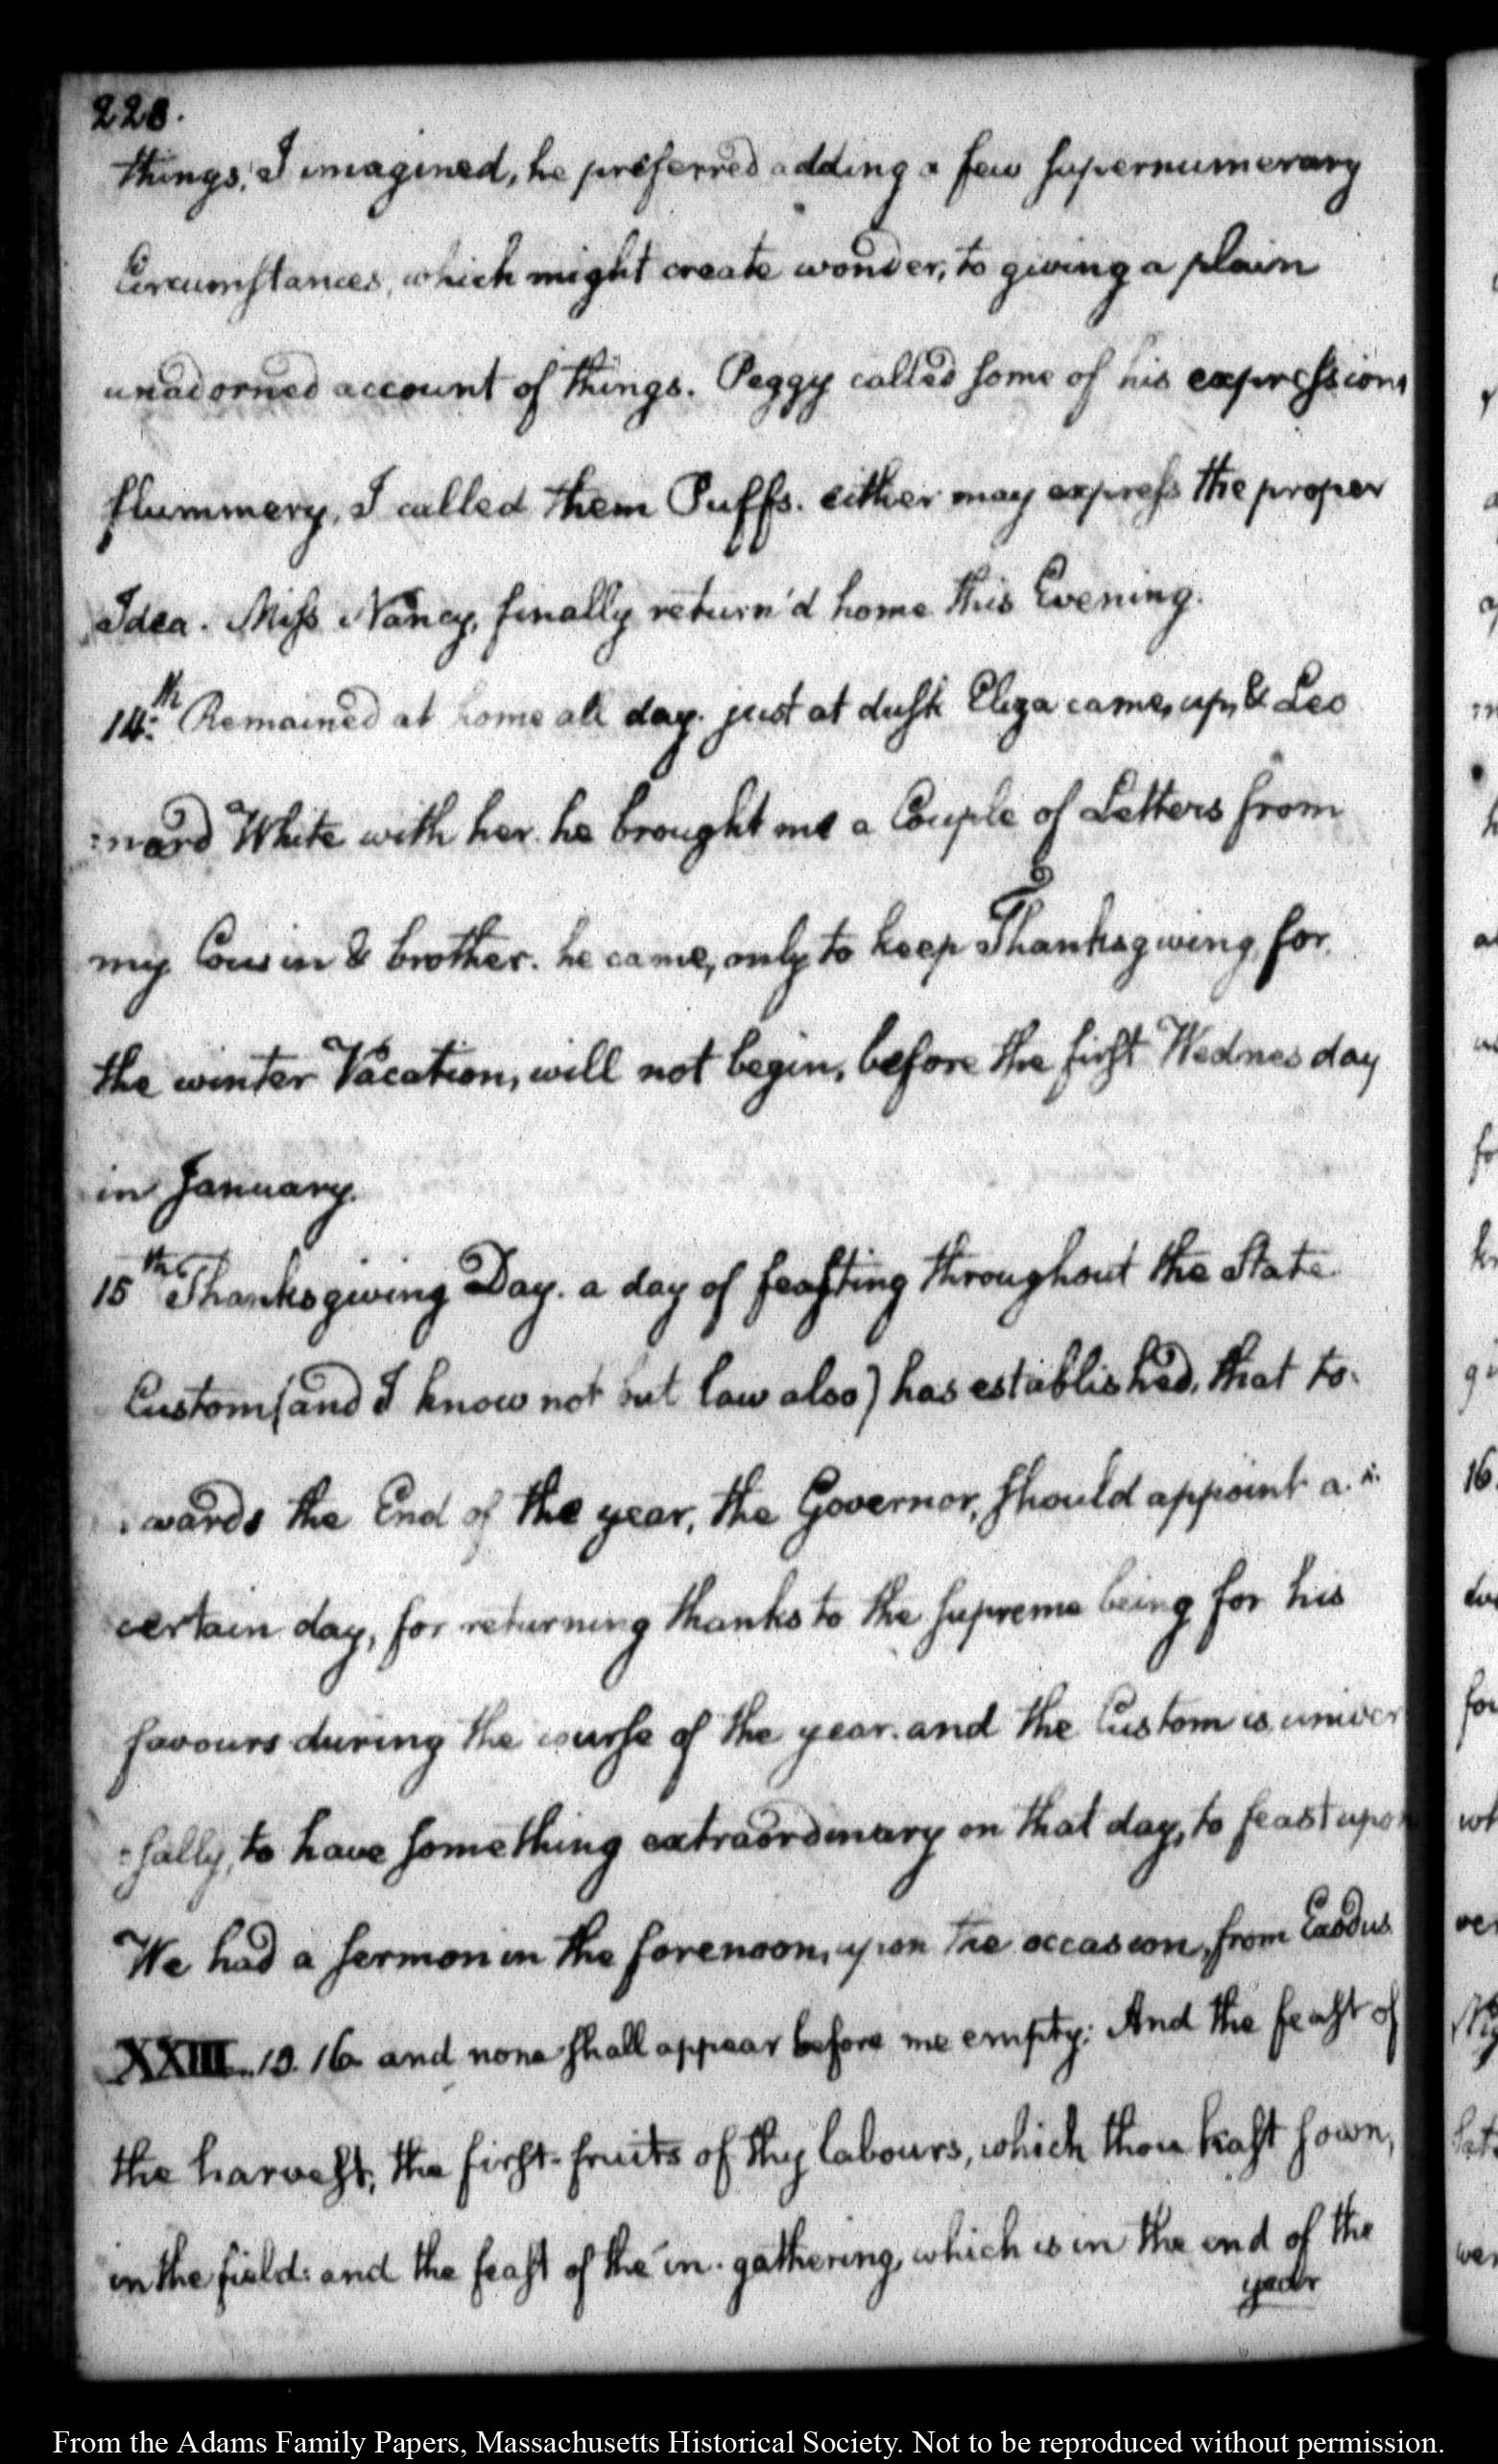 228.
things, I imagined, he preferred adding a few supernumerary
Circumstances, which might create wonder, to giving a plain
unadorned account of things. Peggy called some of his expressions
flummery, I called them Puffs. either may express the proper
Idea. Miss Nancy, finally return'd home this Evening.
14th: Remained at home all day. just at dusk Eliza came, up, & Leo
:nard White with her. he brought me a Couple of Letters from
my Cousin & brother. he came, only to keep Thanksgiving, for
the winter Vacation, will not begin, before the first Wednesday
in January.
15th Thanksgiving Day. a day of feasting throughout the State
Custom (and I know not but law also) has established, that to-
wards the End of the year, the Governor, should appoint a
certain day, for returning thanks to the supreme being for his
favours during the course of the year. and the Custom is univer
:sally, to have something extraordinary on that day, to feast upon
We had a sermon in the forenoon, upon the occasion, from Exodus
XXIII. 15. 16. and none shall appear before me empty: And the feast of
the harvest, the first-fruits of thy labours, which thou hast sown,
in the field: and the feast of the in-gathering, which is in the end of the
year
From the Adams Family Papers, Massachusetts Historical Society. Not to be reproduced without permission.